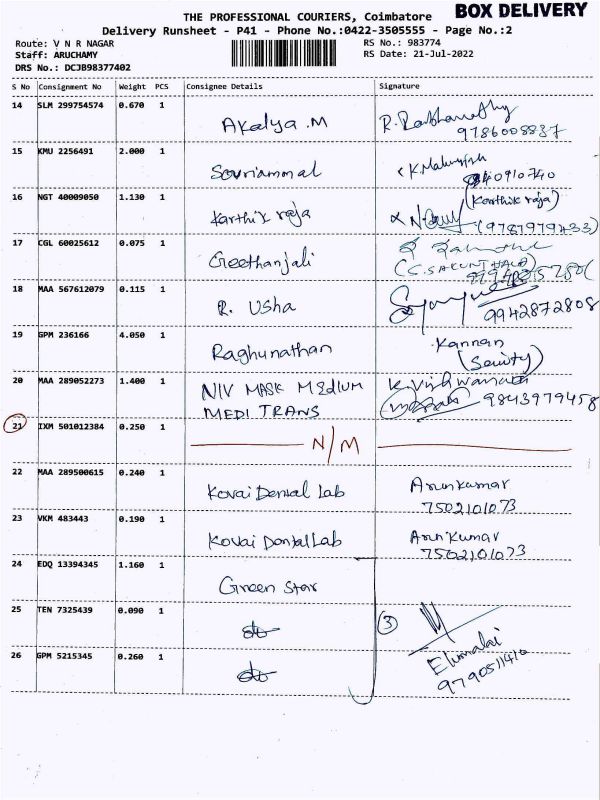 THE PROFESSIONAL COURIERS, Coimbatore BOX DELIVERY
Delivery Runsheet - P41 - Phone No.:0422-3505555 - Page No.:2
Route: V N R NAGAR RS No.: 983774
Staff: ARUCHAMY RS Date: 21-Jul-2022
DRS No.: DCJB98377402
S No Consignment No Weight PCS Consignee Details Signature
14 SLM 299754574 0.670 1 Akalya .M
9786008837
15 KMU 2256491 2.000 1 Souriammal
16 NGT 40009050 1.130 1 Karthik raja (Karthik raja)
17 CGL 60025612 0.075 1 Geethanjali
18 MAA 567612079 0.115 1 R. Usha
9942872808
19 GPM 236166 4.050 1 Raghunathan Kannan
20 MAA 289052273 1.400 1 NIV MASK MEDIUM K. Vishwanath
MEDI TRANS 9843979458
21 IXM 501012384 0.250 1 N/M
22 MAA 289500615 0.240 1 Kovai Dental Lab Arunkumar
7502101073
23 VKM 483443 0.190 1 Kovai Dental Lab Arunkumar
7502101073
24 EDQ 13394345 1.160 1 Green Star
25 TEN 7325439 0.090 1 do 3
26 GPM 5215345 0.260 1 do Elumalai
9790511410